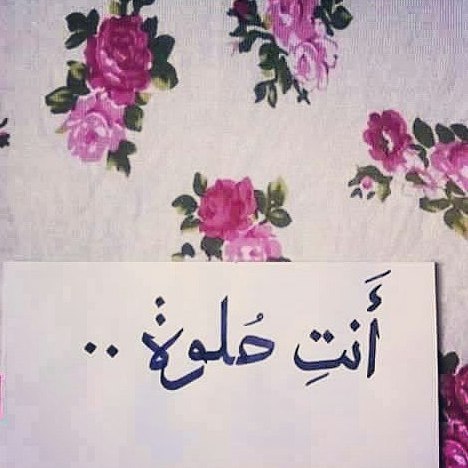 أَنتِ حُلوة ..